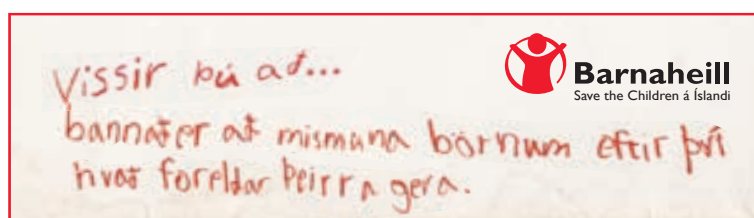 Vissir þú að...
bannað er að mismuna börnum eftir því
hvað foreldar þeirra gera.
Barnaheill
Save the Children á Íslandi